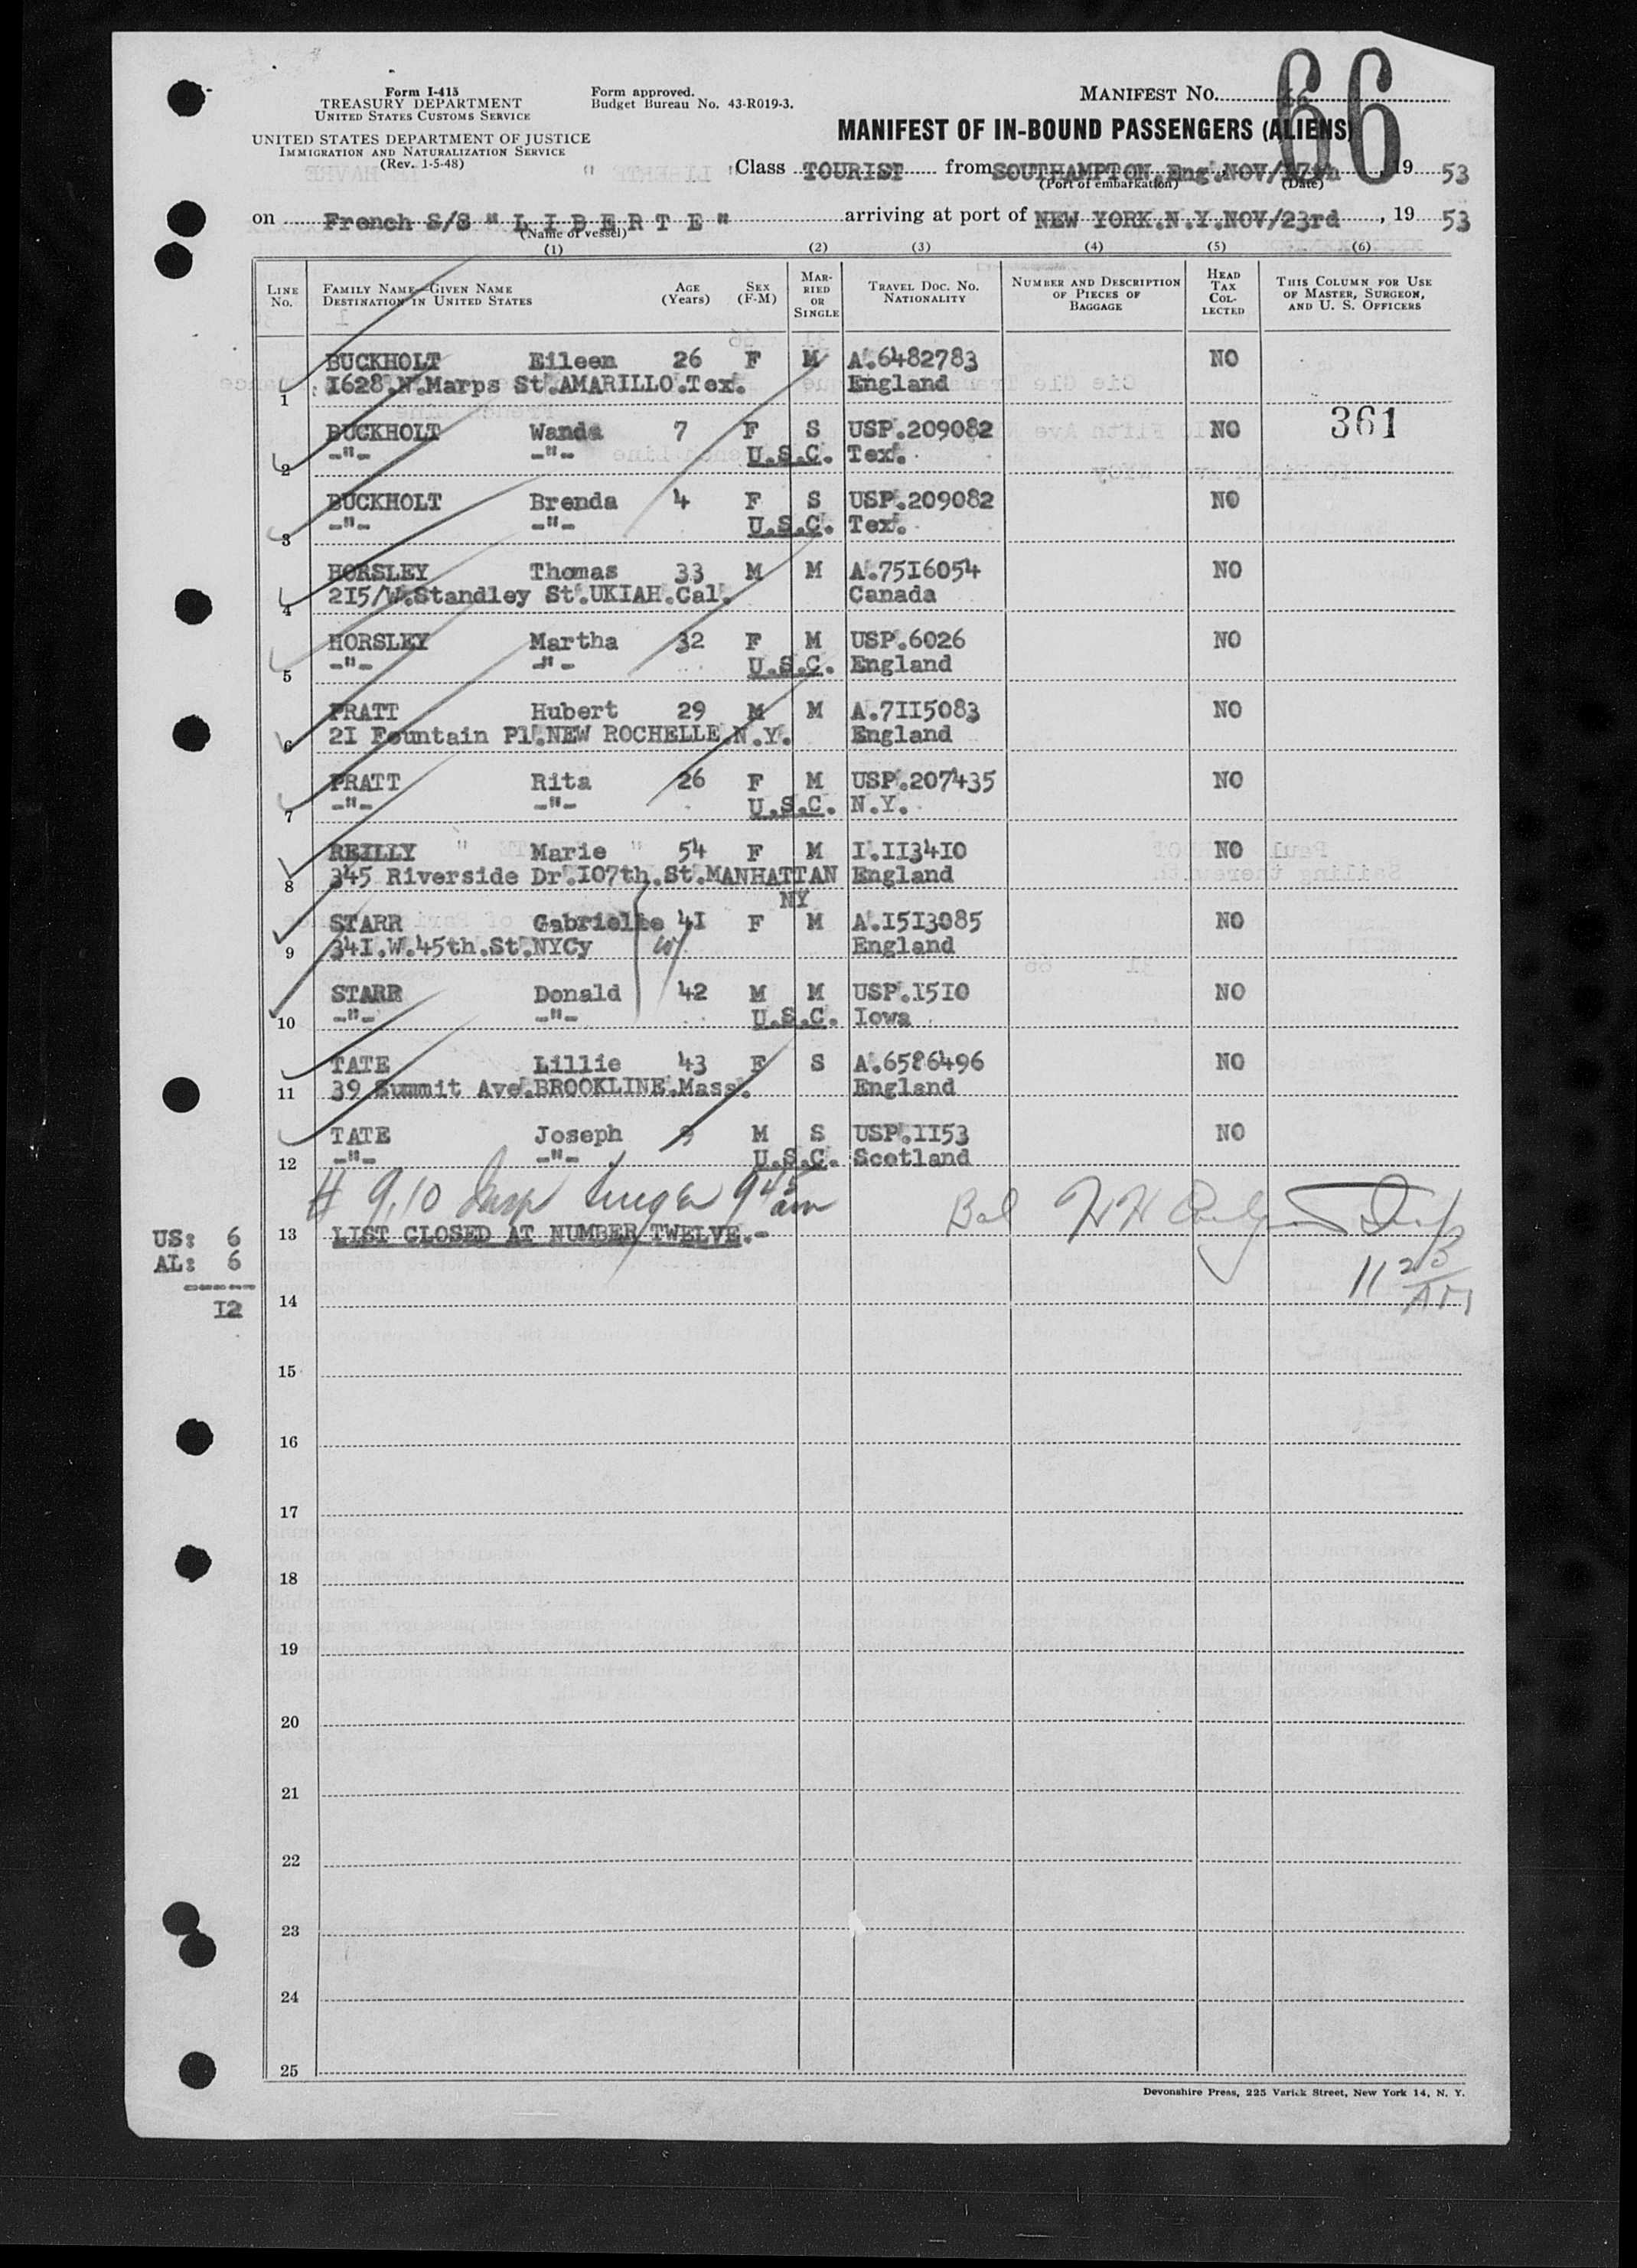 Form I-415
TREASURY DEPARTMENT
UNITED STATES CUSTOMS SERVICE
UNITED STATES DEPARTMENT OF JUSTICE
IMMIGRATION AND NATURALIZATION SERVICE
(Rev. 1-5-48)
Form approved.
Budget Bureau No. 43-R019-3.
MANIFEST NO. 66
66
MANIFEST OF IN-BOUND PASSENGERS (ALIENS)
Class TOURIST from SOUTHAMPTON.Eng.NOV/17th, 19 53
(Port of embarkation) (Date)
on French S/S " L I B E R T E " arriving at port of NEW YORK.N.Y.NOV/23rd, 19 53
(Name of vessel)
(1) (2) (3) (4) (5) (6)
LINE NO. FAMILY NAME—GIVEN NAME DESTINATION IN UNITED STATES AGE (Years) SEX (F-M) MARRIED OR SINGLE TRAVEL DOC. NO. NATIONALITY NUMBER AND DESCRIPTION OF PIECES OF BAGGAGE HEAD TAX COLLECTED THIS COLUMN FOR USE OF MASTER, SURGEON, AND U. S. OFFICERS
BUCKHOLT Eileen 26 F M A.6482783 NO
1 1628 N.Marps St.AMARILLO.Tex. England
361
BUCKHOLT Wanda 7 F S USP.209082 NO
2 -"- -"- U.S.C. Tex.
BUCKHOLT Brenda 4 F S USP.209082 NO
3 -"- -"- U.S.C. Tex.
HORSLEY Thomas 33 M M A.7516054 NO
4 215/W.Standley St.UKIAH.Cal. Canada
HORSLEY Martha 32 F M USP.6026 NO
5 -"- -"- U.S.C. England
PRATT Hubert 29 M M A.7115083 NO
6 21 Fountain Pl.NEW ROCHELLE.N.Y. England
PRATT Rita 26 F M USP.207435 NO
7 -"- -"- U.S.C. N.Y.
REILLY Marie 54 F M I.113410 NO
8 345 Riverside Dr.107th.St.MANHATTAN England
NY
STARR Gabrielle 41 F M A.1513085 NO
9 341.W.45th.St.NYCy England
STARR Donald 42 M M USP.1510 NO
10 -"- -"- U.S.C. Iowa
TATE Lillie 43 F S A.6586496 NO
11 39 Summit Ave.BROOKLINE.Mass. England
TATE Joseph 9 M S USP.1153 NO
12 -"- -"- U.S.C. Scotland
# 9,10 9 45 am
Bal
13 LIST CLOSED AT NUMBER TWELVE.-
11 23 AM
US: 6
AL: 6
-----
12
14
15
16
17
18
19
20
21
22
23
24
25
Devonshire Press, 225 Varick Street, New York 14, N. Y.